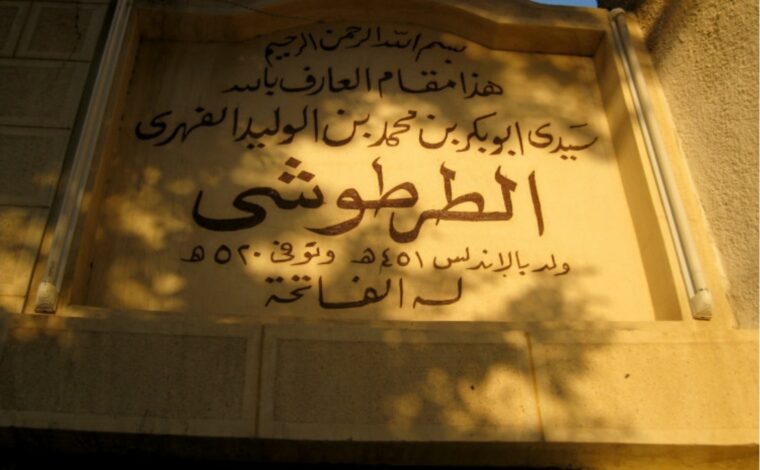 بسم الله الرحمن الرحيم
هذا مقام العارف بالله
سيدى ابو بكر بن محمد بن الوليد الفهرى
الطرطوشى
ولد بالاندلس ٤٥١ هـ وتوفى ٥٢٠ هـ
له الفاتحة